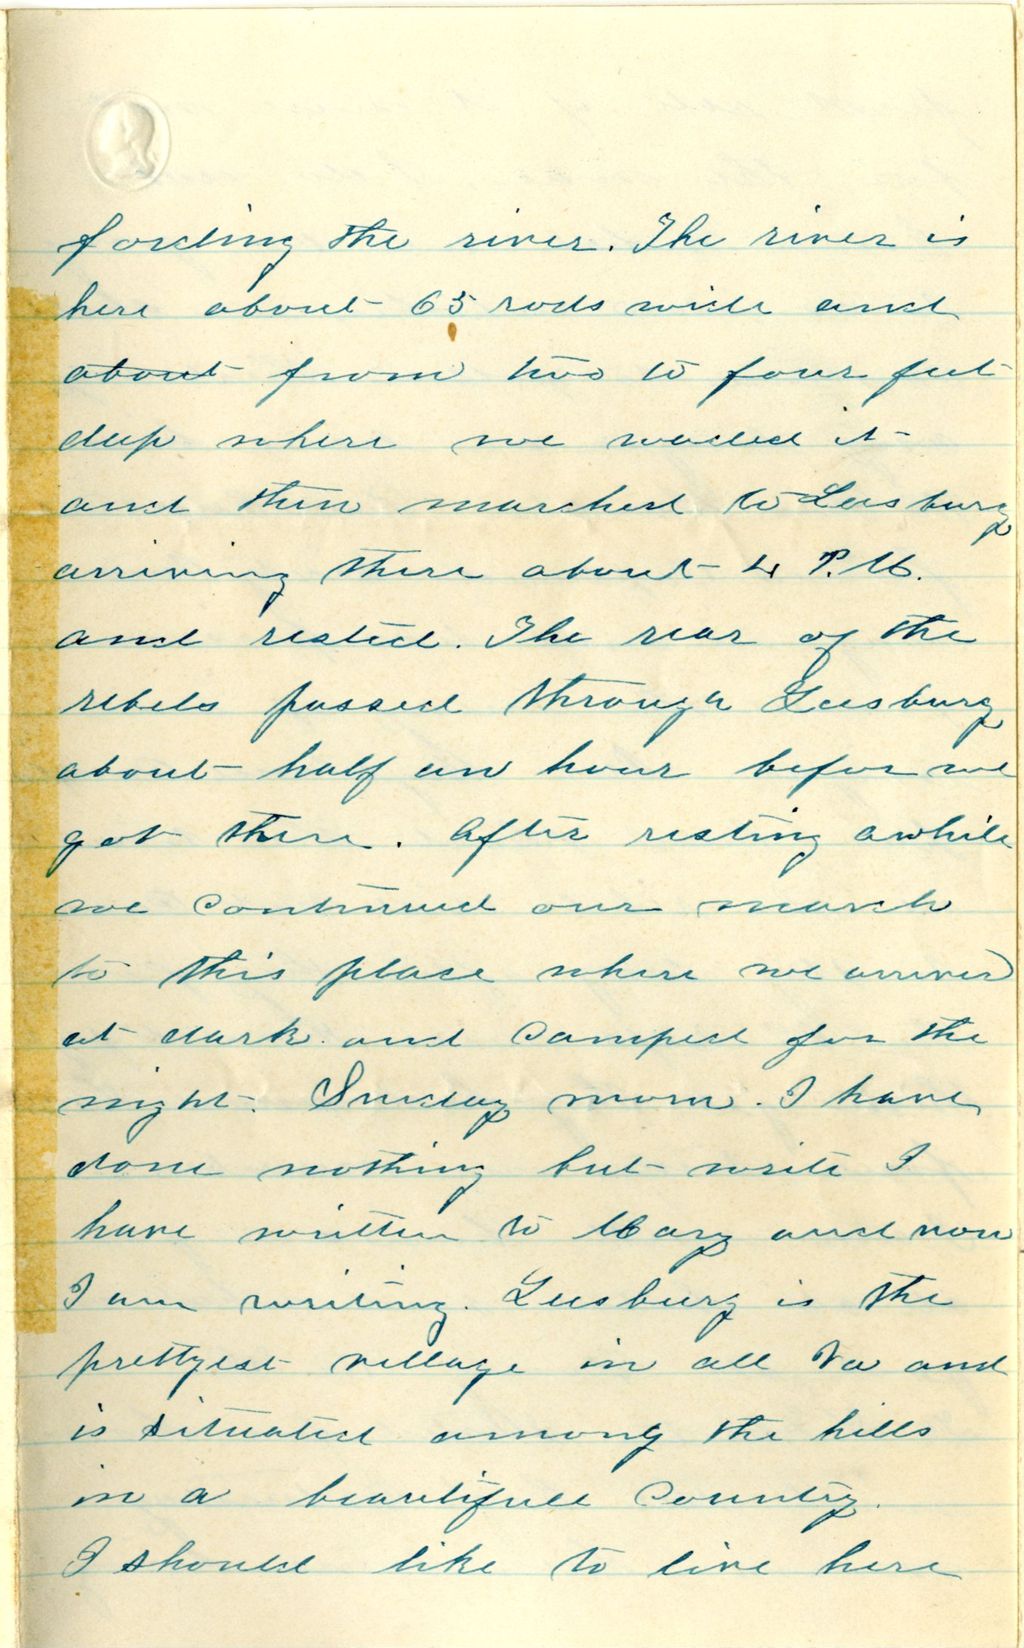 fording the river. The river is
here about 65 rods wide and
about from two to four feet
deep where we waded it
and then marched to Leesburg
arriving there about 4 P.M.
and rested. The rear of the
rebels passed through Leesburg
about half an hour before we
got there. After resting awhile
we continued our march
to this place where we arrived
at dark and camped for the
night. Sunday morn. I have
done nothing but write I
have written to Mary and now
I am writing. Leesburg is the
prettyest village in all Va and
is situated among the hills
in a beautifull country.
I should like to live here